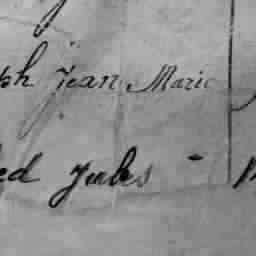 ph Jean Marie
ed Jules -